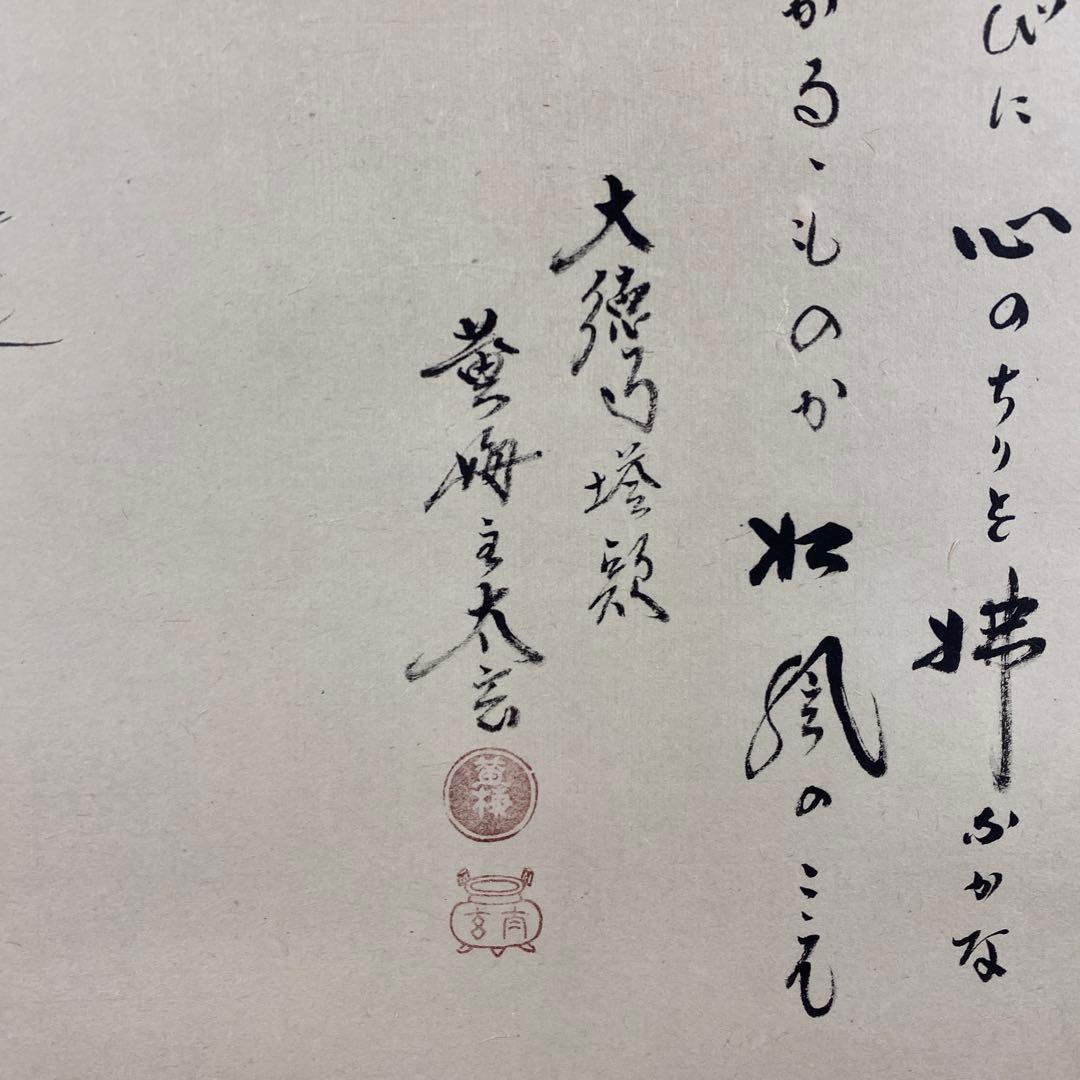 びに心のちりを拂ふかな
かる〻ものか松風のこゑ
大徳寺塔頭
黄梅主太玄
黄梅
太玄